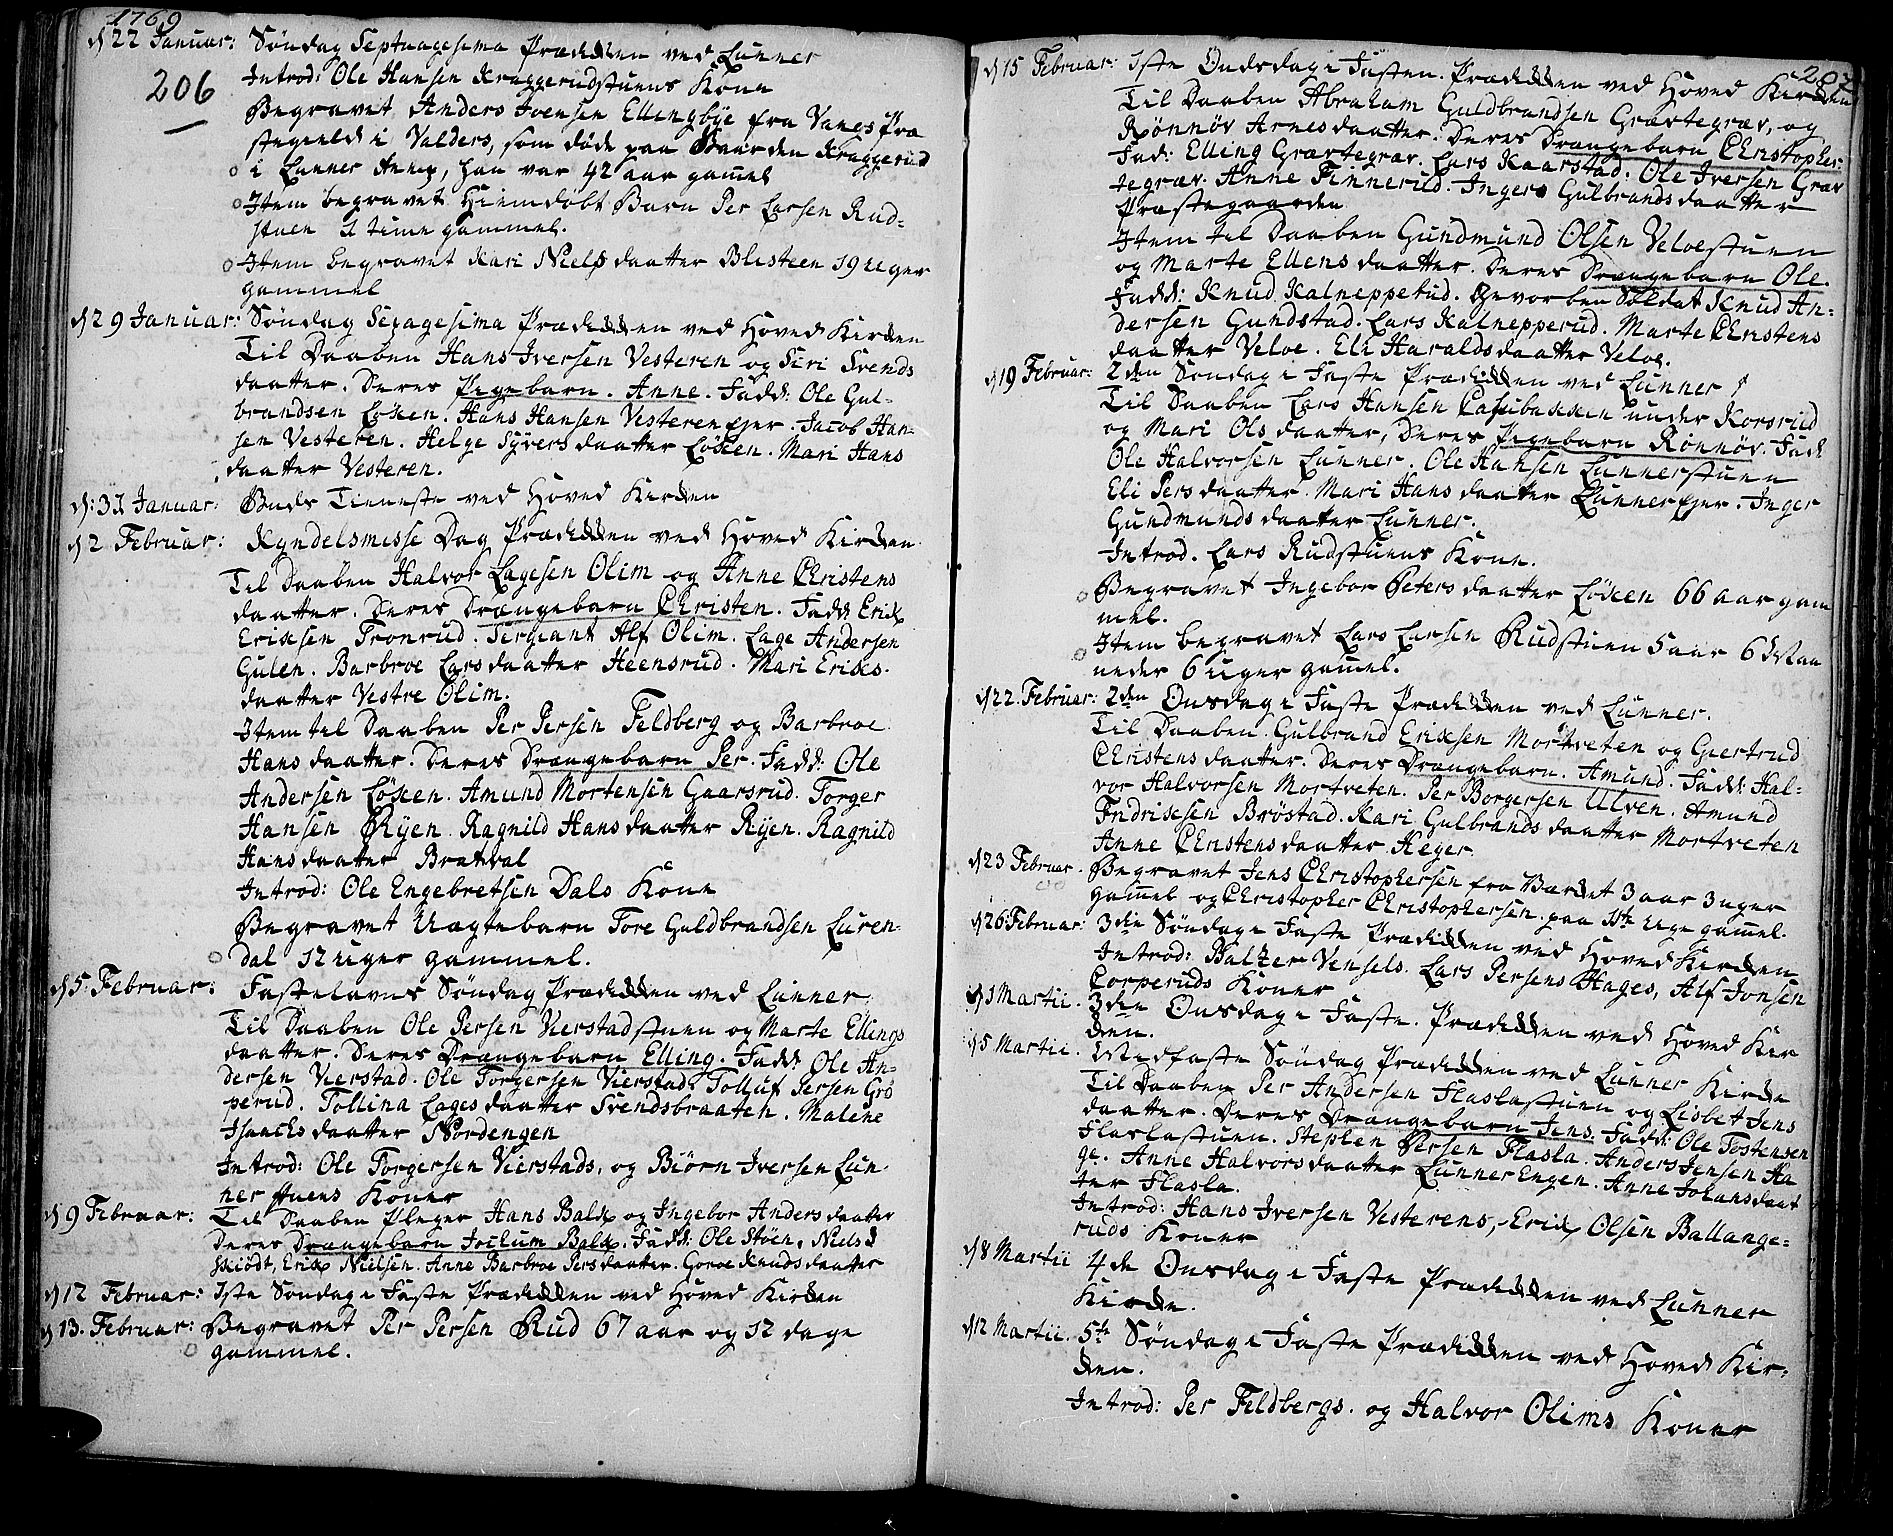 1769
d 22 Januar: Søndag Septuagesima Prædicken ved Lunner
206
Introd: Ole Hansen Kraggerudstuens Kone
Begravet Anders Joensen Ellingbye fra Vangs Præ
stegield i Valders, som døde paa Gaarden Kraggerud
i Lunner Annex, han var 42 aar gam̄el
Item begravet Hiemdøbt Barn Per Larsen Rud-
stuen 1 time gammel.
Item begravet Kari Nielsdaatter Blisteen 19 uger
gammel
d 29 Januar: Søndag Sexagesima Prædicken ved Hoved Kircken
Til Daaben Hans Iversen Vesteren og Siri Svends
daatter. Deres Pigebarn. Anne. Fadd: Ole Gul-
brandsen Løken. Hans Hansen Vesteren ejer. Jacob Han-
sen Vesteren. Helge Syversdaatter Løken. Mari Hans
daatter Vesteren.
d: 31 Januar: Guds Tieneste ved Hoved Kircken
d 2 Februar: Kyndelsmisse Dag Prædicken ved Hoved Kircken
Til Daaben Halvor Lagesen Olim og Anne Christens
daatter. Deres Drængebarn Christen. Fadd: Erik
Eriksen Tronrud. Sergeant Alf Olim. Lage Andersen
Gulen. Barbroe Larsdaatter Heensrud. Mari Eriks-
daatter Vestre Olim.
Item til Daaben Per Persen Feldberg og Barbroe
Hansdaatter. Deres Drængebarn Per. Fadd: Ole
Andersen Løken. Amund Mortensen Gaarsrud. Torger
Hansen Ryen. Ragnild Hansdaatter Ryen. Ragnild
Hansdaatter Bratval
Introd: Ole Engebretsen Dals Kone
Begravet Uægtebarn Tore Guldbrandsen Luren-
dal 12 uger gammel.
d 5 Februar: Fastelavns Søndag Prædicken ved Lunner
Til Daaben Ole Persen Vierstadstuen og Marte Ellings
daatter. Deres Drængebarn Elling. Fadd: Ole An-
dersen Vierstad. Ole Torgersen Vierstad. Tolluf Persen Gro
perud. Tollina Lagesdaatter Svendsbraaten. Malene
Isaachsdaatter Nordengen
Introd: Ole Torgersen Vierstads, og Biørn Iversen Lun-
nerstuens Koner
d 9 Februar: Til Daaben Pleyer Hans Balch og Ingebor Andersdaatter
Deres Drængebarn Jochum Balch. Fadd: Ole Støen, Niels
Skiødt, Erik Nielsen. Anne Barbroe Persdaatter. Goroe Knudsdaatter
d 12 Februar: 1ste Søndag i Faste Prædicken ved Hoved Kircken
d 13. Februar: Begravet Per Persen Rud 67 aar og 12 dage
gammel.
207
d 15 Februar: 1ste Onsdag i Fasten. Prædicken ved Hoved Kircken
Til Daaben Abraham Guldbrandsen Grævtegræv, og
Rønnøv Arnesdaatter. Deres Drængebarn Christopher.
Fad: Elling Grævtegræv. Lars Kaarstad: Ole Iversen Græv
tegræv. Anne Finnerud. Inger Gulbrandsdaatter
Præstegaarden
Item til Daaben Gundmund Olsen Veloestuen
og Marte Ellensdaatter. Deres Drængebarn Ole.
Fadd: Knud Kalnepperud. Gevorben Soldat Knud An-
dersen Gundstad. Lars Kalnepperud. Marte Christens
daatter Veloe. Eli Haraldsdaatter Veloe.
d 19 Februar: 2den Søndag i Faste Prædicken ved Lunner
Til Daaben Lars Hansen under Korsrud
og Mari Olsdaatter, Deres Pigebarn Rønnøv. Fadd
Ole Halvorsen Lunner. Ole Hansen Lunnerstuen
Eli Persdaatter. Mari Hansdaatter Lunner ejer. Inger
Gundmundsdaatter Lunner.
Introd. Lars Rudstuens Kone.
Begravet Ingebor Petersdaatter Løken 66 aar gam
mel.
Item begravet Lars Larsen Rudstuen 5 aar 6 Maa
neder 6 uger gam̄el.
d 22. Februar: 2den Onsdag i Faste Prædicken ved Lunner.
Til Daaben. Gulbrand Eriksen Mortveten og Giertrud
Christensdaatter. Deres Drængebarn. Amund. Fadd: Hal-
vor Halvorsen Mortveten. Per Borgersen Ulven. Amund
Endriksen Brøstad. Kari Gulbrandsdaatter Mortveten
Anne Christensdaatter Heger
d 23 Februar. Begravet Jens Christophersen fra Værket 3 aar 3 uger
gammel og Christopher Christophersen paa 1ste Uge gam̄el.
d 26. Februar: 3die Søndag i Faste Prædicken ved Hoved Kircken
Introd: Baltzer Vensels. Lars Persens Hages, Alf Jonsen
Corperuds Koner
d 1 Martii. 3die Onsdag i Faste. Prædicken ved Hoved Kir
cken.
d 5 Martii. Midfaste Søndag Prædicken ved Lunner Kircke
Til Daaben Per Andersen Flaslastuen og Lisbet Jens
daatter. Deres Drængebarn Jens. Fadd: Ole Tostensen
Flaslastuen. Stephen Persen Flasla. Anders Jensen Ha
ge. Anne Halvorsdaatter LunnerEngen. Anne Johansdaat
ter Flasla.
Introd: Hans Iversen Vesterens, Erik Olsen Ballange-
ruds Koner
d 8 Martii 4de Onsdag i Faste Prædicken ved Lunner
Kircke.
d 12 Martii. 5te Søndag i Faste Prædicken ved Hoved Kir-
cken.
Introd: Per Feldbergs. og Halvor Olims Koner